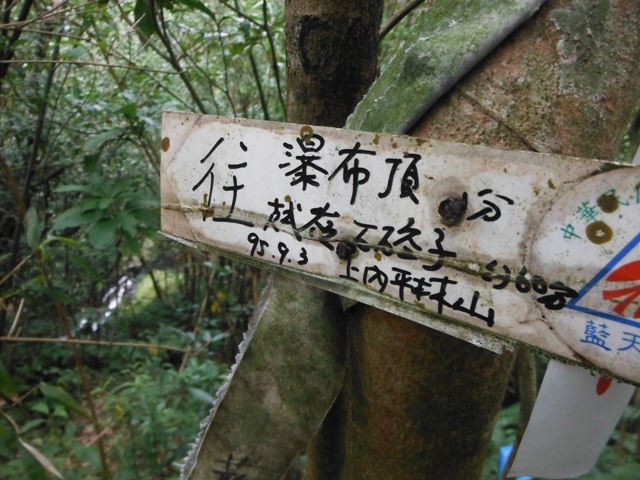 往 瀑布頂 分
石硿子 約60分
95.9.3 上內平林山
中華民
藍天